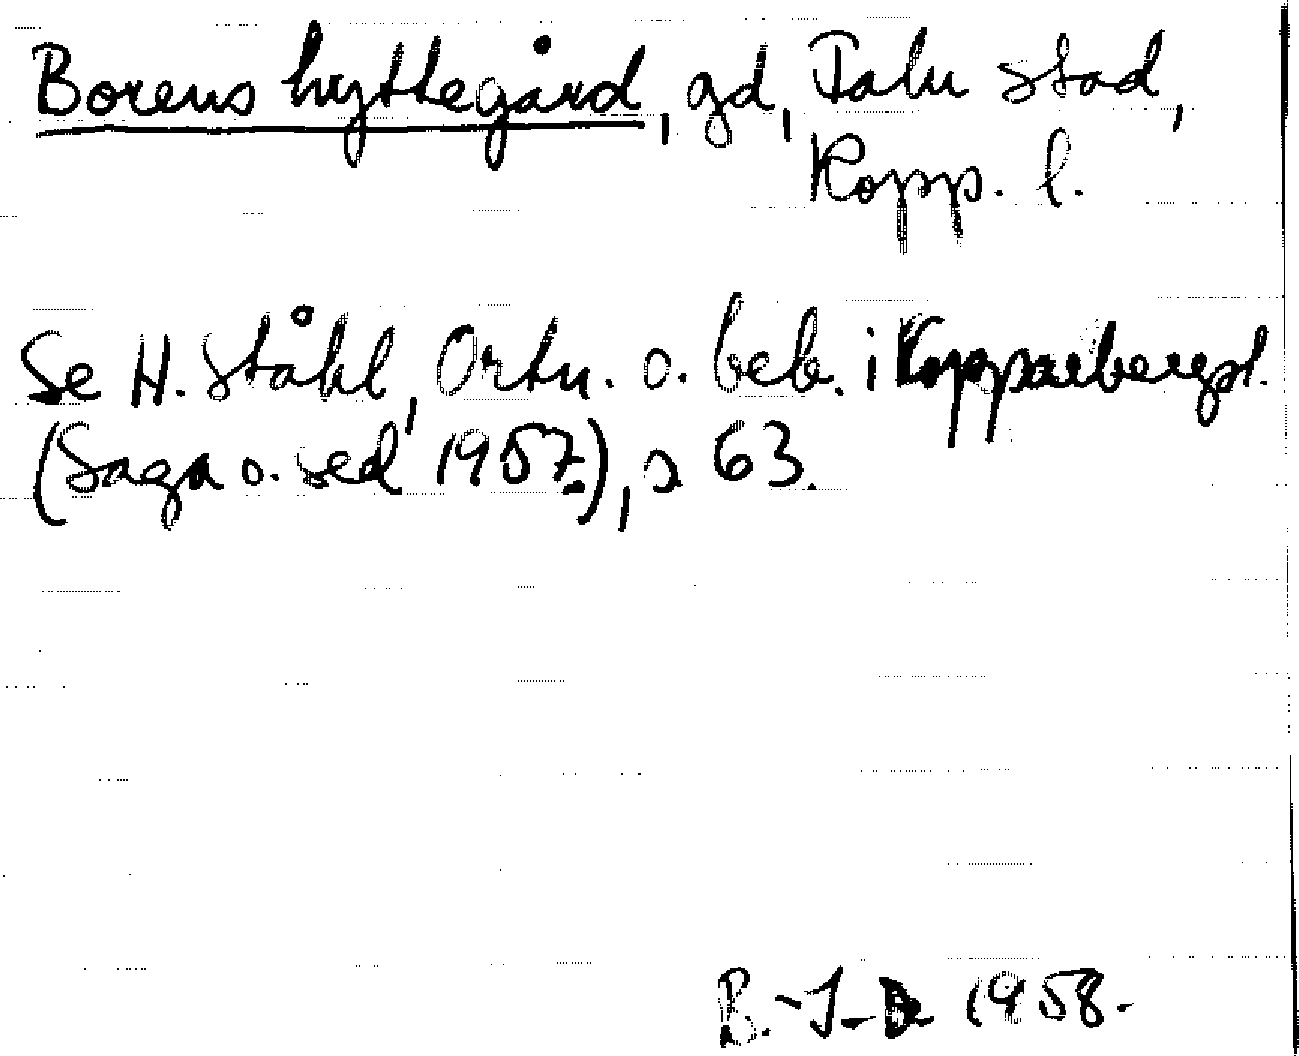 Borens hyttegård, gd, Falu stad,
Kopp. l.
Se H. Ståhl, Ortn. o. beb. i Kopparbergsl.
(Saga o. sed 1957), s 63.
B.-I. D 1958.